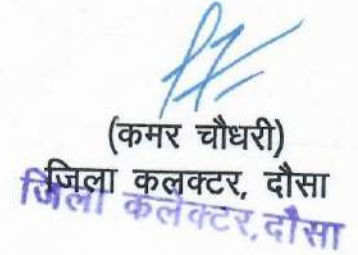 (कमर चौधरी)
जिला कलक्टर, दौसा
जिला कलेक्टर, दौसा